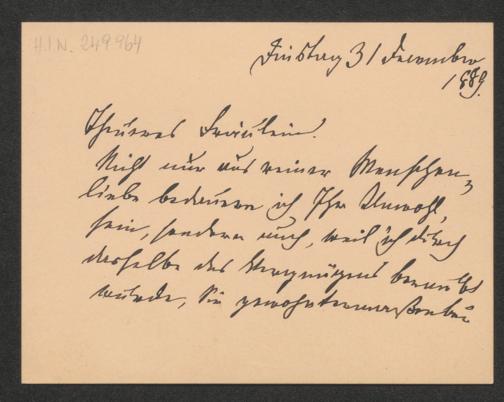 H.I.N. 249964
Dinstag 31 Dezember
1889.
Theueres Fräulein!
Nicht nur aus reiner Menschen-
liebe bedauere ich Ihr Unwohl-
sein, sondern auch, weil ich durch
dasselbe des Vergnügens beraubt
wurde, Sie gewohntermaßen bei